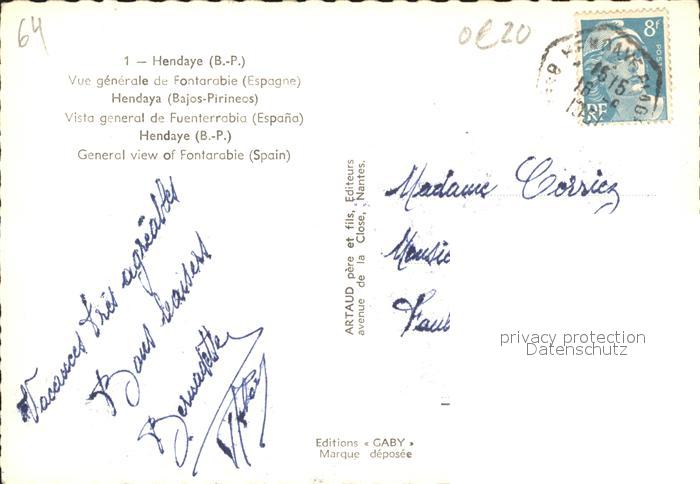 64
1 — Hendaye (B.-P.)
Vue générale de Fontarabie (Espagne)
Hendaya (Bajos-Pirineos)
Vista general de Fuenterrabia (España)
Hendaye (B.-P.)
General view of Fontarabie (Spain)
Vacances très agréables
Bons baisers
Bernadette
ARTAUD père et fils, Editeurs
avenue de la Close, Nantes.
Editions « GABY »
Marque déposée
8f
POSTES
RF
HENDAYE PLAGE
Madame
Monsie
privacy protection
Datenschutz